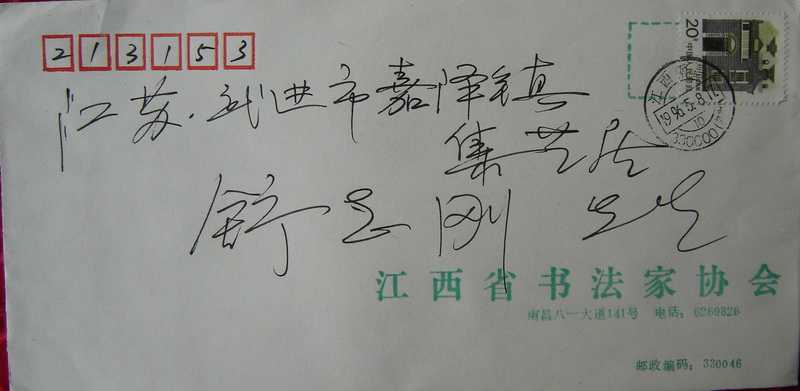 213153
20分
中国人民邮政
江西
1996.5.8
10
330000
江苏.武进市嘉泽镇
集艺居
舒玉刚 先生
江西省书法家协会
南昌八一大道141号 电话：6269826
邮政编码：330046